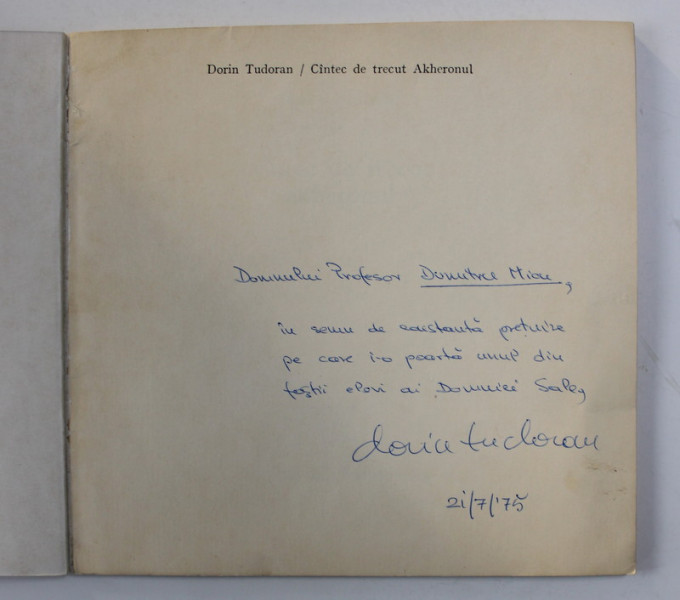 Dorin Tudoran / Cîntec de trecut Akheronul
Domnului Profesor Dumitru Micu,
în semn de constantă prețuire
pe care i-o poartă unul din
foștii elevi ai Domniei Sale,
dorin tudoran
21/7/'75